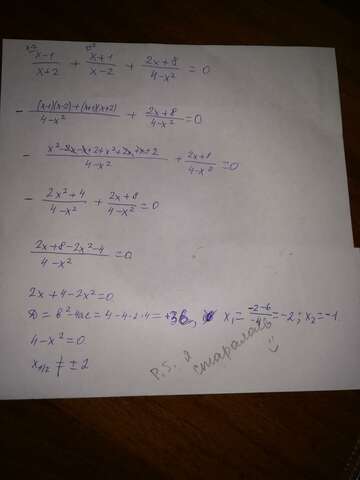 x-2 x+2
x-1/x+2 + x+1/x-2 + 2x+8/4-x² = 0
- (x-1)(x-2)+(x+1)(x+2)/4-x² + 2x+8/4-x² = 0
- x²-2x-x+2+x²+2x+x+2/4-x² + 2x+8/4-x² = 0
- 2x²+4/4-x² + 2x+8/4-x² = 0
2x+8-2x²-4/4-x² = 0
2x+4-2x²=0
D = b²-4ac = 4-4·2·4 = +36, x₁ = -2-6/-4 = -2; x₂ = -1
4-x²=0
x₁/₂ ≠ ±2
P.S. я
старалась